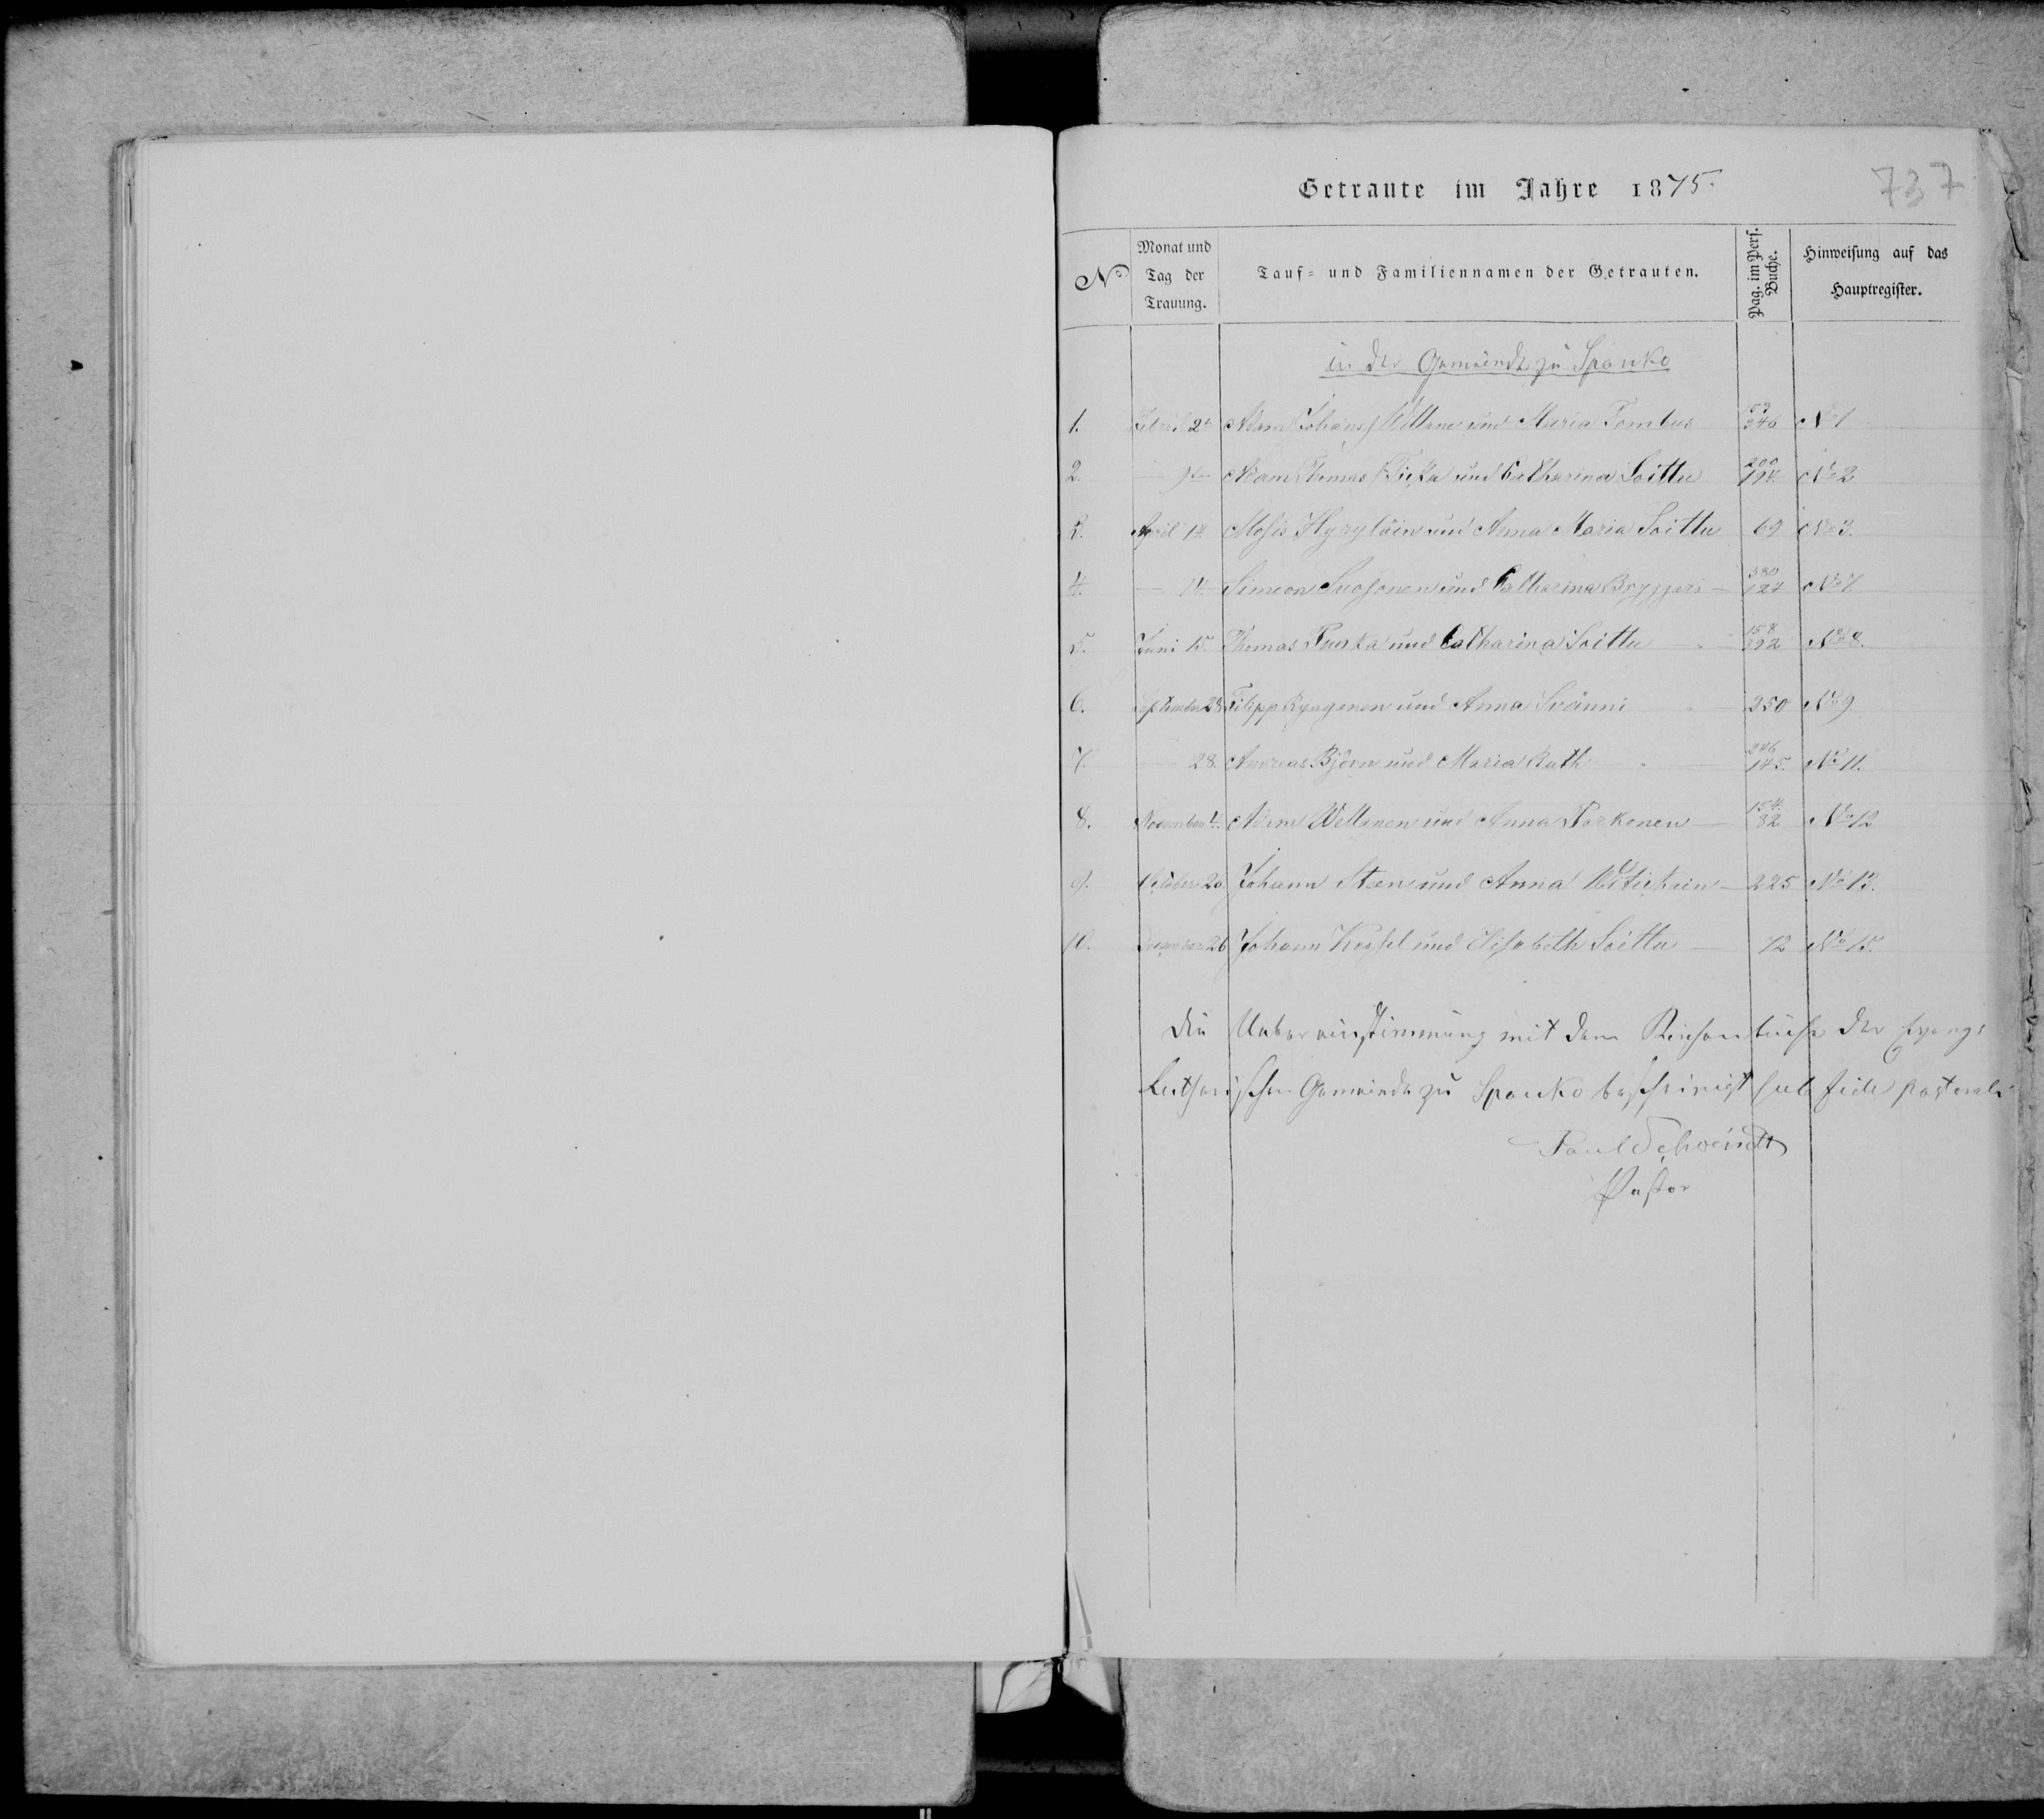 Getraute im Jahre 1875.
737
No
Monat und Tag der Trauung.
Tauf- und Familiennamen der Getrauten.
Pag. im Pers. Buche.
Hinweisung auf das Hauptregister.
in der Gemeinde zu Spanko
1. Febr. 2 Adam Johans Wellane und Maria Tombus 346 No 1
2. — 9 Adam Thomas und Catharina Soittu 200 194. No 2
3. April 14. Moses Hyryläin und Anna Maria Soittu 69 No 3.
4. — 14. Simeon Suojonen und Catharina Bryggari — 380 124 No 7.
5. Juni 15. Thomas Purka und Catharina Soittu — 158 392 No 8.
6. September 28. Filipp und Anna Svänni 250 No 9
7. — 28. Andreas Björn und Maria Ruth — 246 145. No 11.
8. November 4. Adam Wellanen und Anna Parkonen — 154. 32 No 12
9. October 20. Johann Steen und Anna — 225 No 13.
10. 26 Johann Kessel und Elisabeth Soittu — 72 No 15.
Die Uebereinstimmung mit dem Kirchenbuche der Evang:
Lutherischen Gemeinde zu Spanko bescheinigt sub fide pastorali
Paul Schwindt
Pastor